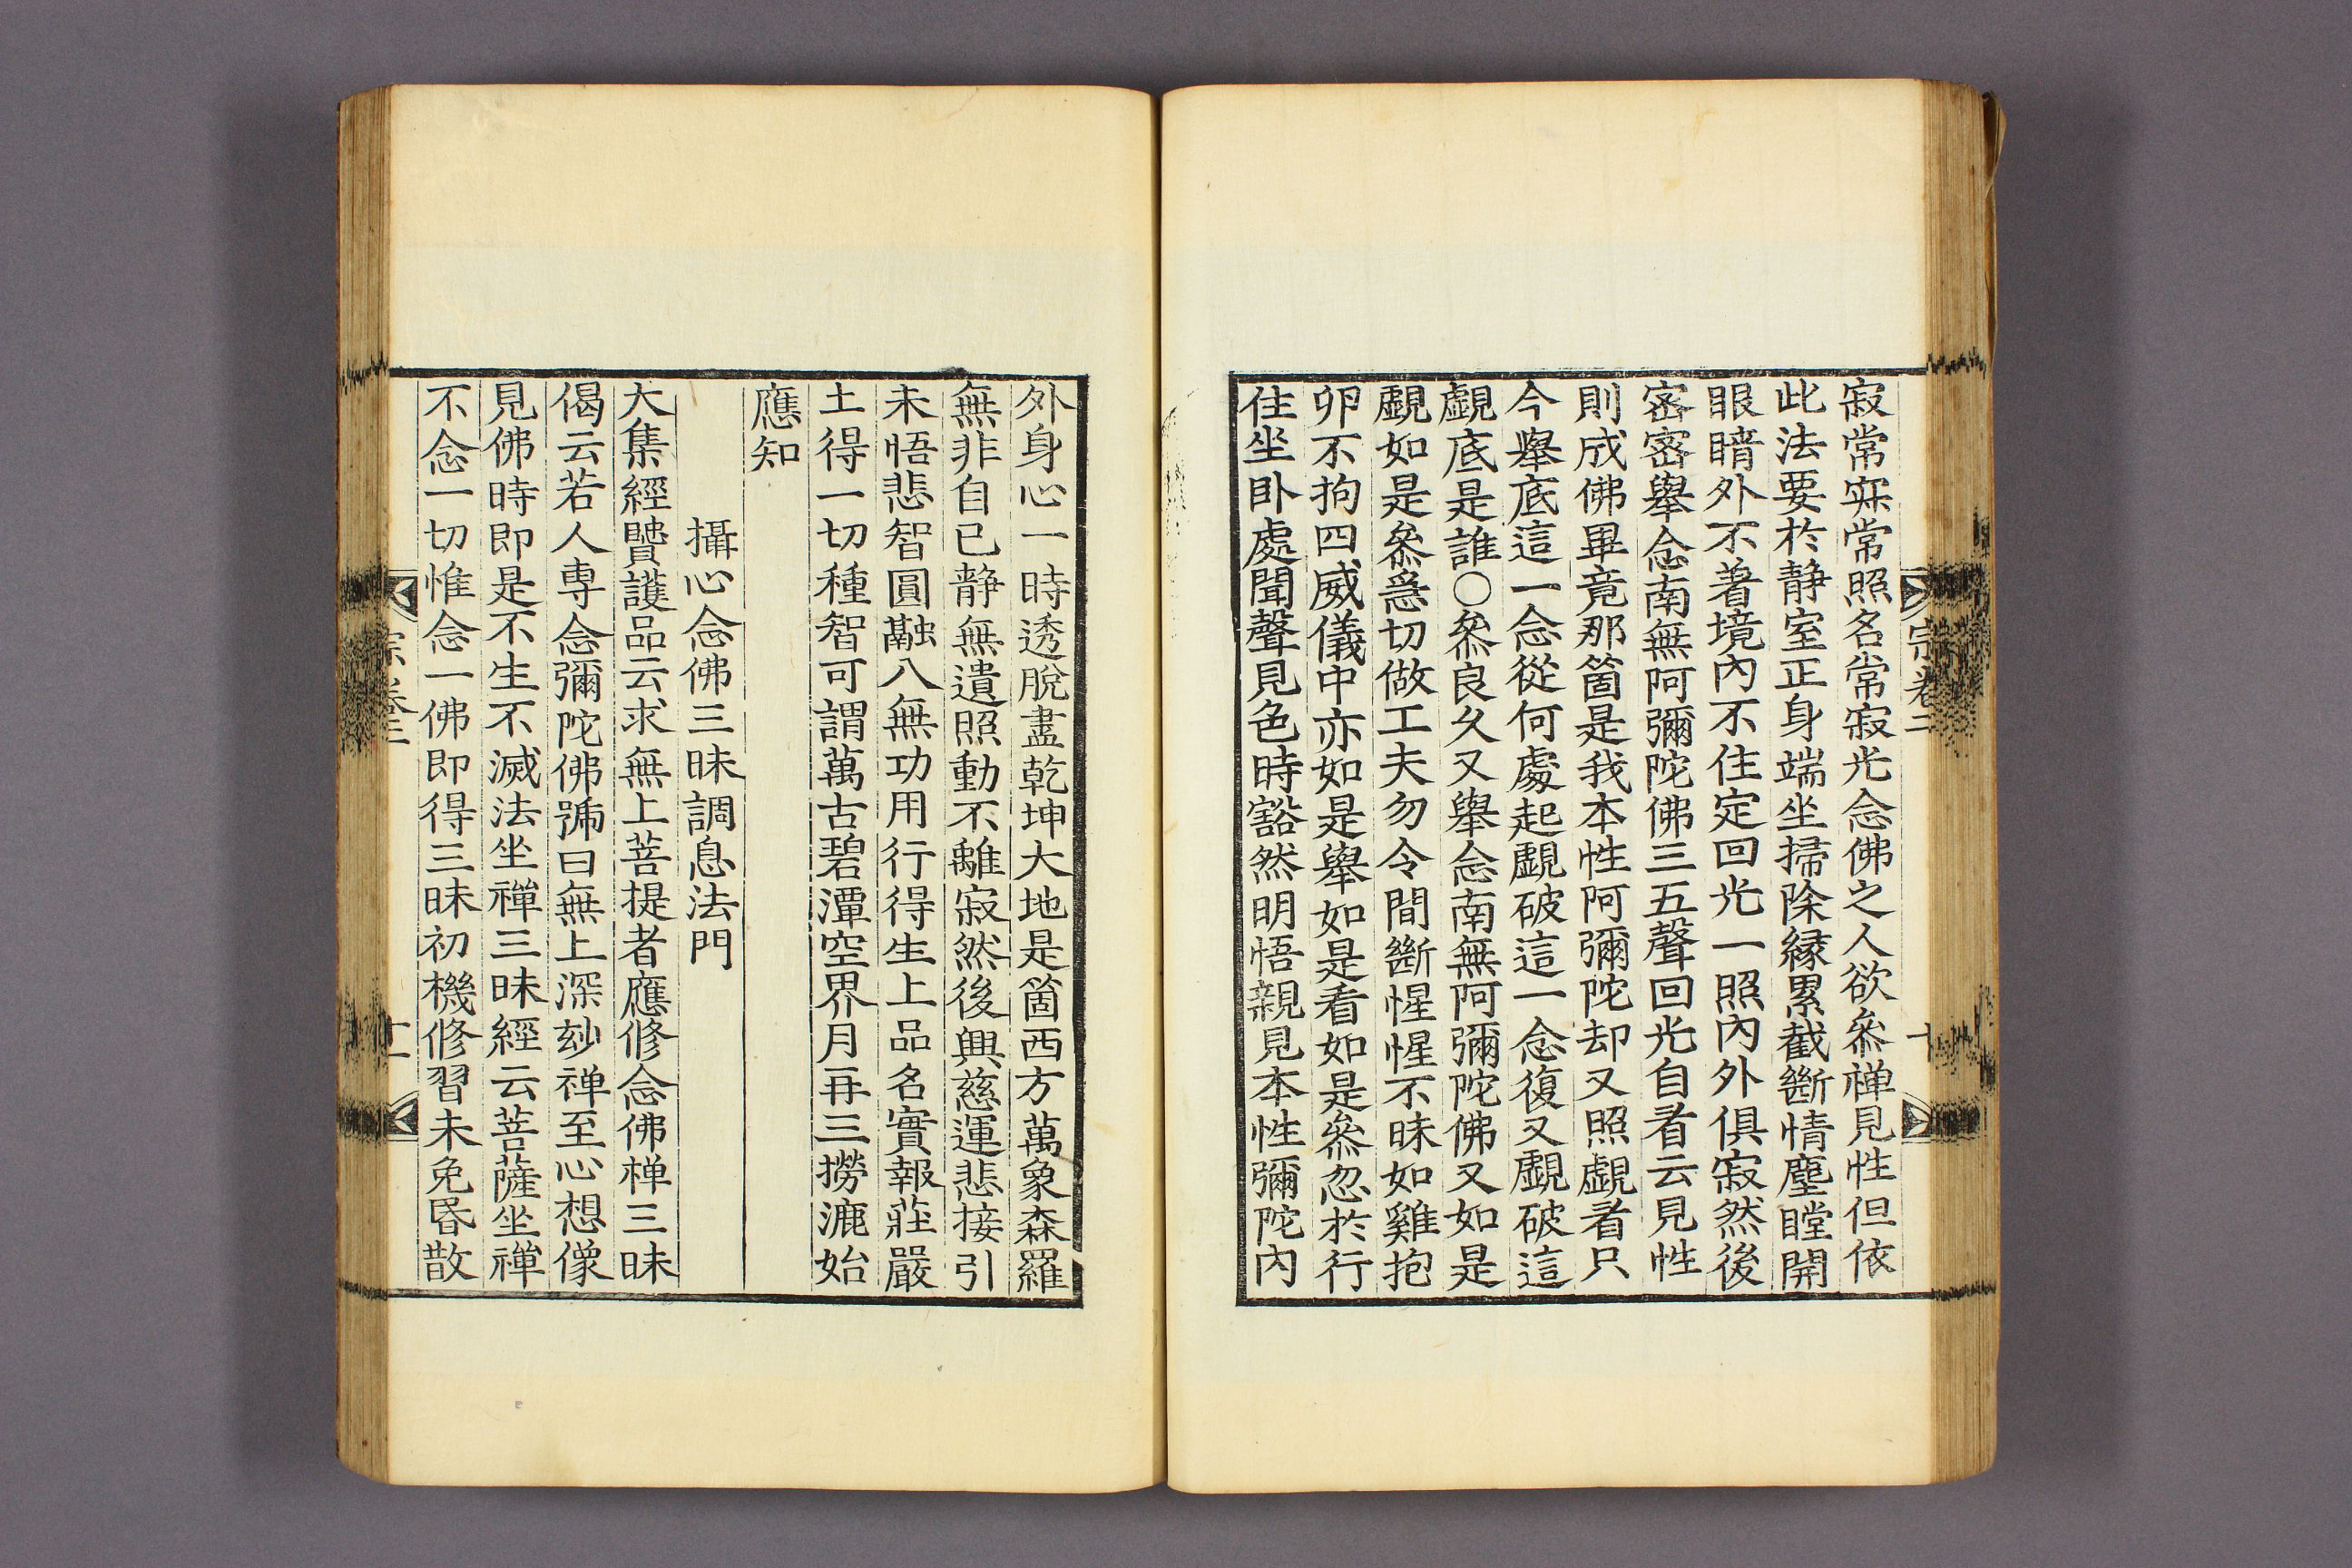 寂常寂常照名常寂光念佛之人欲叅禅見性但依
此法要於静室正身端坐掃除縁累截斷情塵瞠開
眼睛外不着境內不住定回光一照內外俱寂然後
密密舉念南無阿彌陀佛三五聲回光自看云見性
則成佛畢竟那箇是我本性阿彌陀却又照覷看只
今舉底這一念從何處起覷破這一念復又覷破這
覷底是誰○叅良久又舉念南無阿彌陀佛又如是
覷如是叅急切做工夫勿令間斷惺惺不昧如雞抱
卵不拘四威儀中亦如是舉如是看如是叅忽於行
住坐卧處聞聲見色時豁然明悟親見本性彌陀內
宗卷二
十
外身心一時透脫盡乾坤大地是箇西方萬象森羅
無非自己静無遺照動不離寂然後興慈運悲接引
未悟悲智圓融入無功用行得生上品名實報莊嚴
土得一切種智可謂萬古碧潭空界月再三撈漉始
應知
攝心念佛三昧調息法門
大集經賢護品云求無上菩提者應修念佛禅三昧
偈云若人専念彌陀佛號曰無上深玅禅至心想像
見佛時即是不生不滅法坐禪三昧經云菩薩坐禪
不念一切惟念一佛即得三昧初機修習未免昏散
宗卷二
十一